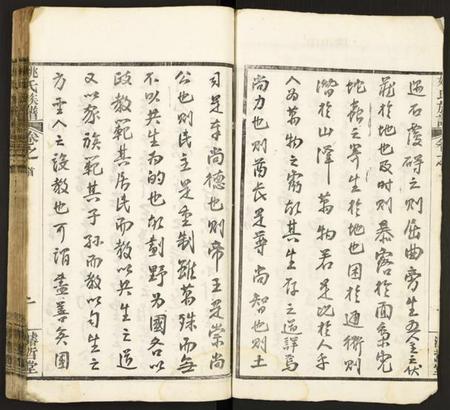 過石覆碍之則屈曲旁生五金之伏
藏於地也及時則暴露於面象究
蛇龜之寄生於地也困於通衢則
潛於山澤萬物若是比於人乎
人為萬物之霸故其生存之道詳焉
尚力也則酋長是尊尚智也則土
司是奉尚德也則帝王是崇尚
公也則民主是重制雖萬殊而無
不以共生為的也故劃野為國各以
政教範其居民而教以共生之道
又以家族範其子孫而教以匀生之
方聖人之設教也可謂盡善矣國
姚氏族譜
卷之首
濬哲堂